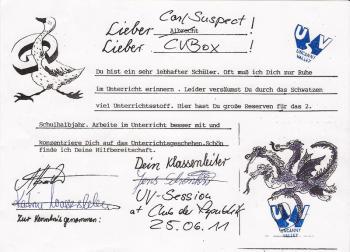 Lieber Carl Suspect!
Albrecht
Lieber CVBox!
UV
UNCANNY
VALLEY
Du bist ein sehr lebhafter Schüler. Oft muß ich Dich zur Ruhe
im Unterricht erinnern . Leider versäumst Du durch das Schwatzen
viel Unterrichtsstoff. Hier hast Du große Reserven für das 2.
Schulhalbjahr. Arbeite im Unterricht besser mit und
konzentriere Dich auf das Unterrichtsgeschehen.Schön
finde ich Deine Hilfbereitschaft.
Dein Klassenleiter
UV-Session
at Club de Republik
25.06.11
Zur Kenntnis genommen:
UV
UNCANNY
VALLEY